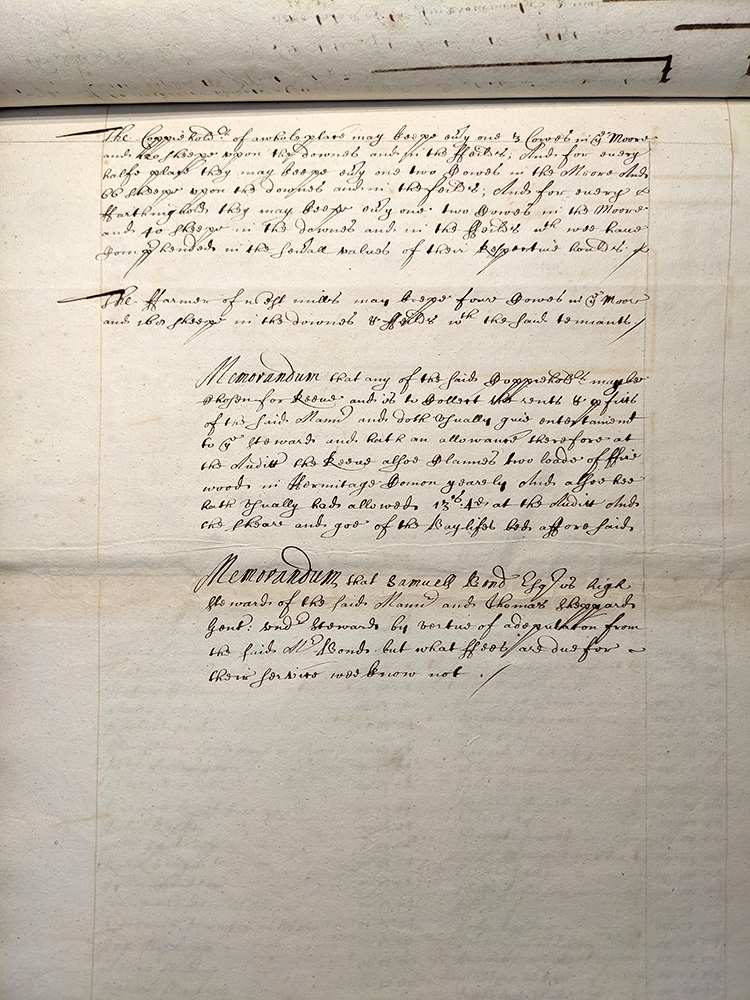 The Coppiehold:rs of a whole place may keepe ev'y one 3 Cowes in ye Moore
and 120 sheepe upon the downes and in the ffeilds; And for every
halfe place they may keepe ev'y one two Cowes in the Moore And
66 sheepe upon the downes and in the feilds; And for every
ffarthinghold they may keepe ev'y one two Cowes in the Moore
and 40 sheepe in the downes and in the ffeilds wch wee have
Comp'hended in the sev'all values of their Respective houlds
The ffarmer of mills may keepe foure Cowes in ye Moore
and 160 sheepe in the downes & ffeilds wth the said tennants /
Memorandum that any of the said Coppiehold:rs may be
Chosen for Reeve and is to Collect the rents & p'fitts
of the said Mann'r and doth usually give entertainmt
to ye stewards and hath an allowance therefore at
the Auditt the Reeve alsoe Claimes two loads of ffire
wood in Hermitage Comon yearely And alsoe hee
hath usually had allowed 13s: 4d at the Auditt And
the sheare and goe of the Baylifes bed affore said
Memorandum that Samuell Bond Esqr is high
Steward of the said Mann'r and Thomas Sheppard
Gent: und'r Steward by vertue of a deputation from
the said Mr Bond but what ffees are due for
their service wee know not . /